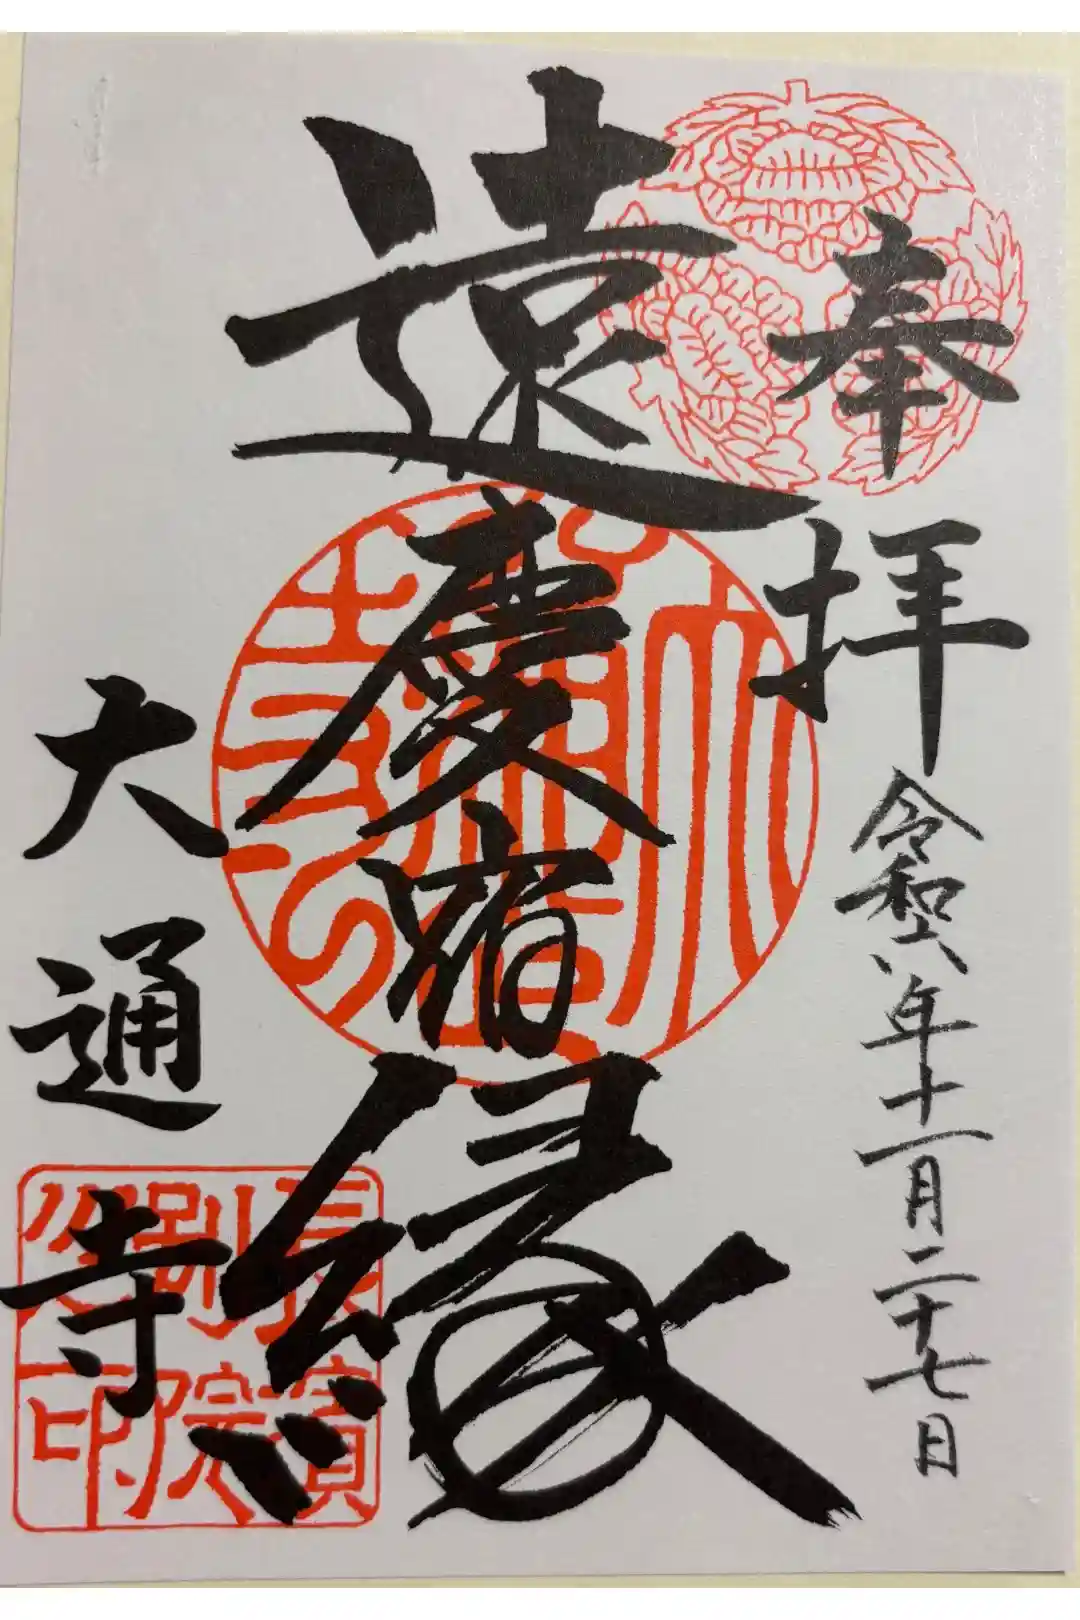 奉拝
令和六年十一月二十七日
遠慶宿縁
大通寺
長濱
別院
印